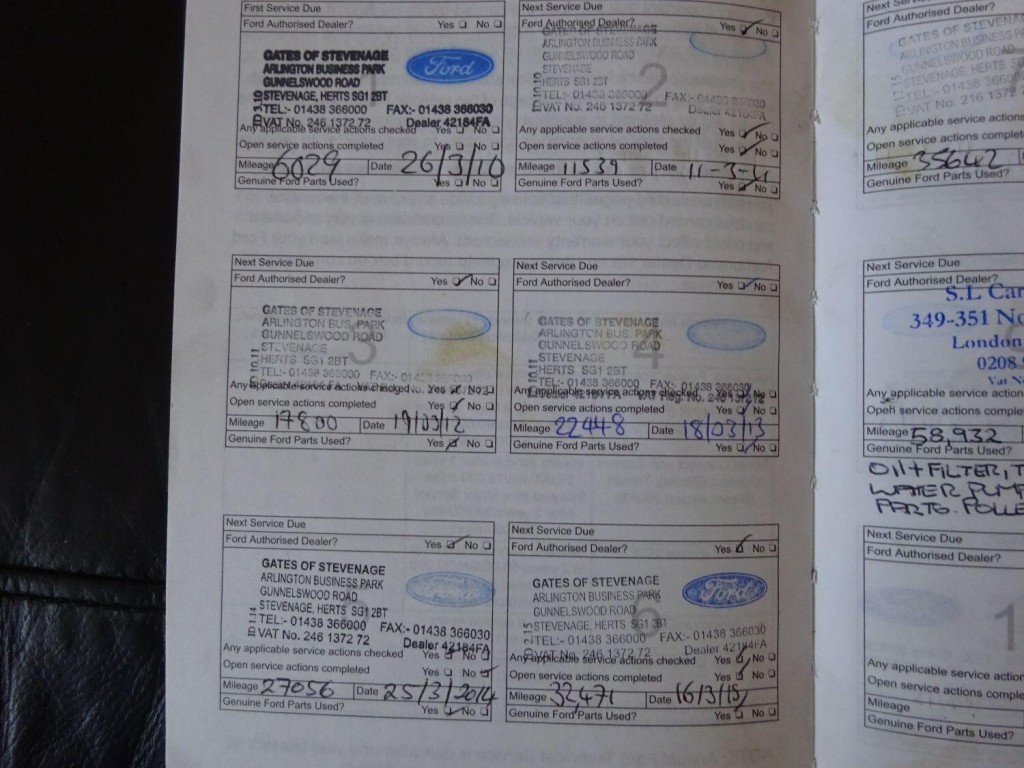 First Service Due
Ford Authorised Dealer? Yes No
GATES OF STEVENAGE
ARLINGTON BUSINESS PARK
GUNNELSWOOD ROAD
STEVENAGE, HERTS SG1 2BT
TEL:- 01438 366000 FAX:- 01438 366030
VAT No. 246 1372 72 Dealer 42184FA
Ford
Any applicable service actions checked Yes No
Open service actions completed Yes No
Mileage 6029 Date 26/3/10
Genuine Ford Parts Used? Yes No
Next Service Due
Ford Authorised Dealer? Yes No
GATES OF STEVENAGE
ARLINGTON BUSINESS PARK
GUNNELSWOOD ROAD
STEVENAGE
HERTS SG1 2BT
2
TEL:- 01438 366000 FAX:- 01438
VAT No. 246 1372 72 Dealer 42184FA
Any applicable service actions checked Yes No
Open service actions completed Yes No
Mileage 11539 Date 11-3-11
Genuine Ford Parts Used? Yes No
Next Service Due
Ford Authorised Dealer? Yes No
GATES OF STEVENAGE
ARLINGTON BUS. PARK
GUNNELSWOOD ROAD
STEVENAGE
HERTS SG1 2BT
3
TEL:- 01438 366000 FAX:- 01438 366030
Any applicable service actions checked Yes No
Open service actions completed Yes No
Mileage 17800 Date 19/03/12
Genuine Ford Parts Used? Yes No
Next Service Due
Ford Authorised Dealer? Yes No
GATES OF STEVENAGE
ARLINGTON BUS. PARK
GUNNELSWOOD ROAD
STEVENAGE
HERTS SG1 2BT
4
TEL:- 01438 366000 FAX:- 01438 366030
Any applicable service actions checked Yes No
Open service actions completed Yes No
Mileage 22448 Date 18/03/13
Genuine Ford Parts Used? Yes No
Next Service Due
Ford Authorised Dealer? Yes No
GATES OF STEVENAGE
ARLINGTON BUSINESS PARK
GUNNELSWOOD ROAD
STEVENAGE, HERTS SG1 2BT
TEL:- 01438 366000 FAX:- 01438 366030
VAT No. 246 1372 72 Dealer 42184FA
Ford
Any applicable service actions checked Yes No
Open service actions completed Yes No
Mileage 27056 Date 25/3/2014
Genuine Ford Parts Used? Yes No
Next Service Due
Ford Authorised Dealer? Yes No
GATES OF STEVENAGE
ARLINGTON BUSINESS PARK
GUNNELSWOOD ROAD
STEVENAGE, HERTS SG1 2BT
6
TEL:- 01438 366000 FAX:- 01438 366030
VAT No. 246 1372 72 Dealer 42184FA
Ford
Any applicable service actions checked Yes No
Open service actions completed Yes No
Mileage 32471 Date 16/3/15
Genuine Ford Parts Used? Yes No
Next Service Due
Ford Authorised Dealer?
GATES OF STEVENAGE
ARLINGTON BUSINESS PARK
GUNNELSWOOD ROAD
STEVENAGE, HERTS
TEL:- 01438 3660
VAT No. 216 1372 7
Any applicable service actions
Open service actions complet
Mileage 35642
Genuine Ford Parts Used?
Next Service Due
Ford Authorised Dealer?
S.L Car
349-351 No
London
0208
Vat N
Any applicable service action
Open service actions comple
Mileage 58,932
Genuine Ford Parts Used?
OIL + FILTER, T
WATER PUMP
PARTS. POLLE
Next Service Due
Ford Authorised Dealer?
1
Any applicable service action
Open service actions comple
Mileage
Genuine Ford Parts Used?